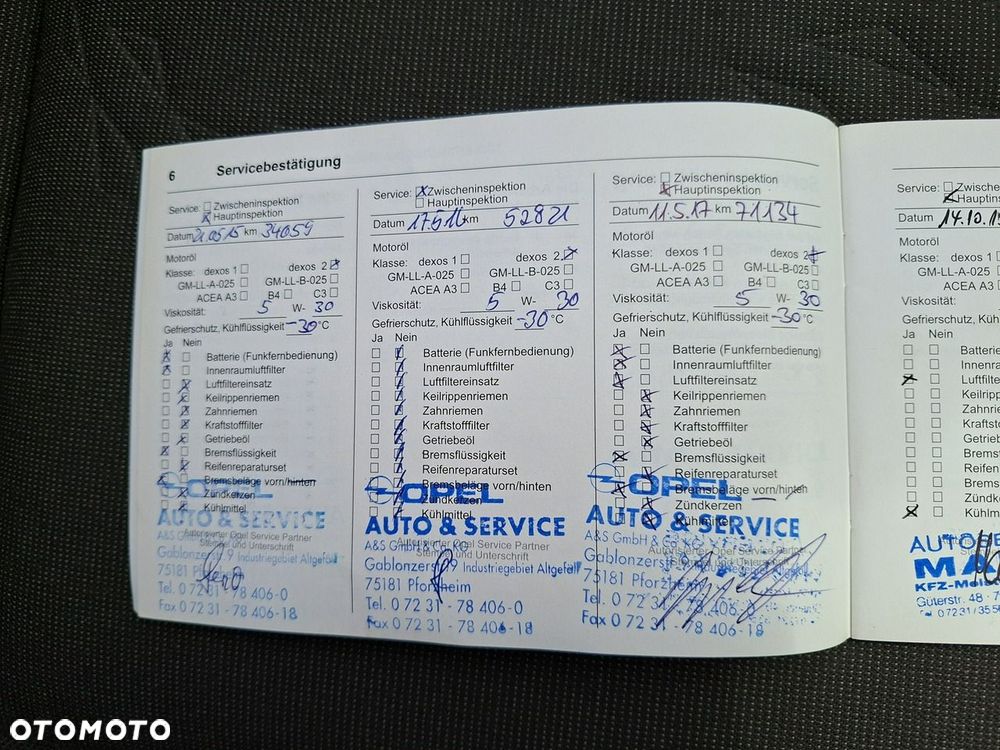 6 Servicebestätigung
Service: Zwischeninspektion
Hauptinspektion
Datum 21.05.15 km 34059
Motoröl
Klasse: dexos 1 dexos 2
GM-LL-A-025 GM-LL-B-025
ACEA A3 B4 C3
Viskosität: 5 W- 30
Gefrierschutz, Kühlflüssigkeit -30 °C
Ja Nein
Batterie (Funkfernbedienung)
Innenraumluftfilter
Luftfiltereinsatz
Keilrippenriemen
Zahnriemen
Kraftstofffilter
Getriebeöl
Bremsflüssigkeit
Reifenreparaturset
Bremsbeläge vorn/hinten
Zündkerzen
Kühlmittel
OPEL
AUTO & SERVICE
A&S GmbH & Co KG
Autorisierter Opel Service Partner
Stempel und Unterschrift
Gablonzerstr. 9 Industriegebiet Altgefäll
75181 Pforzheim
Tel. 0 72 31 - 78 406-0
Fax 0 72 31 - 78 406-18
Service: Zwischeninspektion
Hauptinspektion
Datum 17.5.16 km 52821
Motoröl
Klasse: dexos 1 dexos 2
GM-LL-A-025 GM-LL-B-025
ACEA A3 B4 C3
Viskosität: 5 W- 30
Gefrierschutz, Kühlflüssigkeit -30 °C
Ja Nein
Batterie (Funkfernbedienung)
Innenraumluftfilter
Luftfiltereinsatz
Keilrippenriemen
Zahnriemen
Kraftstofffilter
Getriebeöl
Bremsflüssigkeit
Reifenreparaturset
Bremsbeläge vorn/hinten
Zündkerzen
Kühlmittel
OPEL
AUTO & SERVICE
A&S GmbH & Co KG
Autorisierter Opel Service Partner
Stempel und Unterschrift
Gablonzerstr. 9 Industriegebiet Altgefäll
75181 Pforzheim
Tel. 0 72 31 - 78 406-0
Fax 0 72 31 - 78 406-18
Service: Zwischeninspektion
Hauptinspektion
Datum 11.5.17 km 71134
Motoröl
Klasse: dexos 1 dexos 2
GM-LL-A-025 GM-LL-B-025
ACEA A3 B4 C3
Viskosität: 5 W- 30
Gefrierschutz, Kühlflüssigkeit -30 °C
Ja Nein
Batterie (Funkfernbedienung)
Innenraumluftfilter
Luftfiltereinsatz
Keilrippenriemen
Zahnriemen
Kraftstofffilter
Getriebeöl
Bremsflüssigkeit
Reifenreparaturset
Bremsbeläge vorn/hinten
Zündkerzen
Kühlmittel
OPEL
AUTO & SERVICE
A&S GmbH & Co KG
Autorisierter Opel Service Partner
Stempel und Unterschrift
Gablonzerstr. 9 Industriegebiet Altgefäll
75181 Pforzheim
Tel. 0 72 31 - 78 406-0
Fax 0 72 31 - 78 406-18
Service: Zwischen
Hauptins
Datum 14.10.1
Motoröl
Klasse: dexos 1
GM-LL-A-025
ACEA A3
Viskosität:
Gefrierschutz, Kühlflüssi
Ja Nein
Batterie
Innenrau
Luftfilte
Keilripp
Zahnrie
Kraftsto
Getriebe
Bremsfl
Reifenre
Bremsbe
Zündker
Kühlm
AUTO
MA
KFZ-Meis
Güterstr. 48 - 7
OTOMOTO